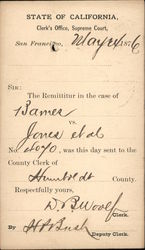 STATE OF CALIFORNIA,
Clerk's Office, Supreme Court,
San Francisco, May 24 1876
SIR:
The Remittitur in the case of
Barnes
vs.
Jones et al
No. 4070, was this day sent to the
County Clerk of
Humboldt County.
Respectfully yours,
D. B. Woolf
Clerk.
By
Deputy Clerk.